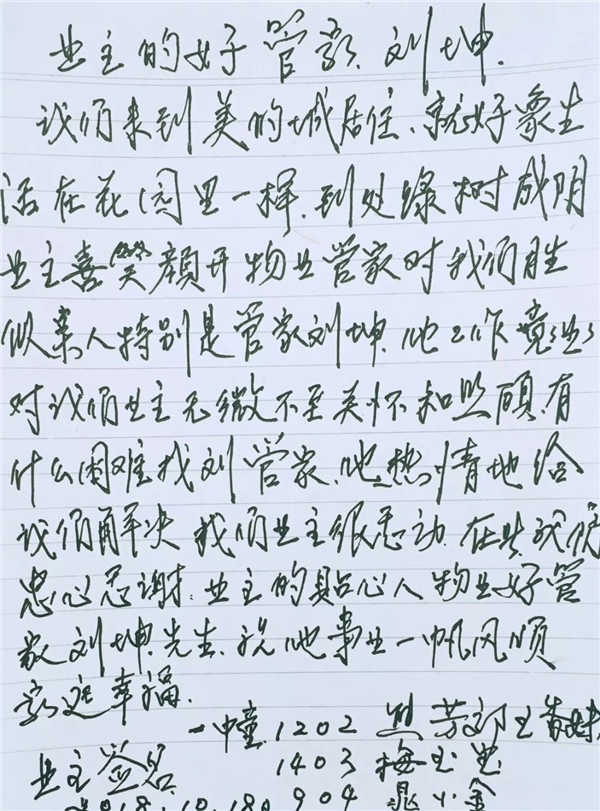 业主的好管家.刘坤.
我们来到美的城居住、就好象生
活在花园里一样.到处绿树成阴
业主喜笑颜开物业管家对我们胜
似亲人特别是管家刘坤.他工作兢业
对我们业主无微不至关怀和照顾.有
什么困难找刘管家、他热情地给
我们解决 我们业主很感动.在此我们
忠心感谢.业主的贴心人物业好管
家刘坤.先生.祝他事业一帆风顺
家庭幸福.
一中童.1202 芳
业主签名 1403 梅
2018.10.18. 904 小金